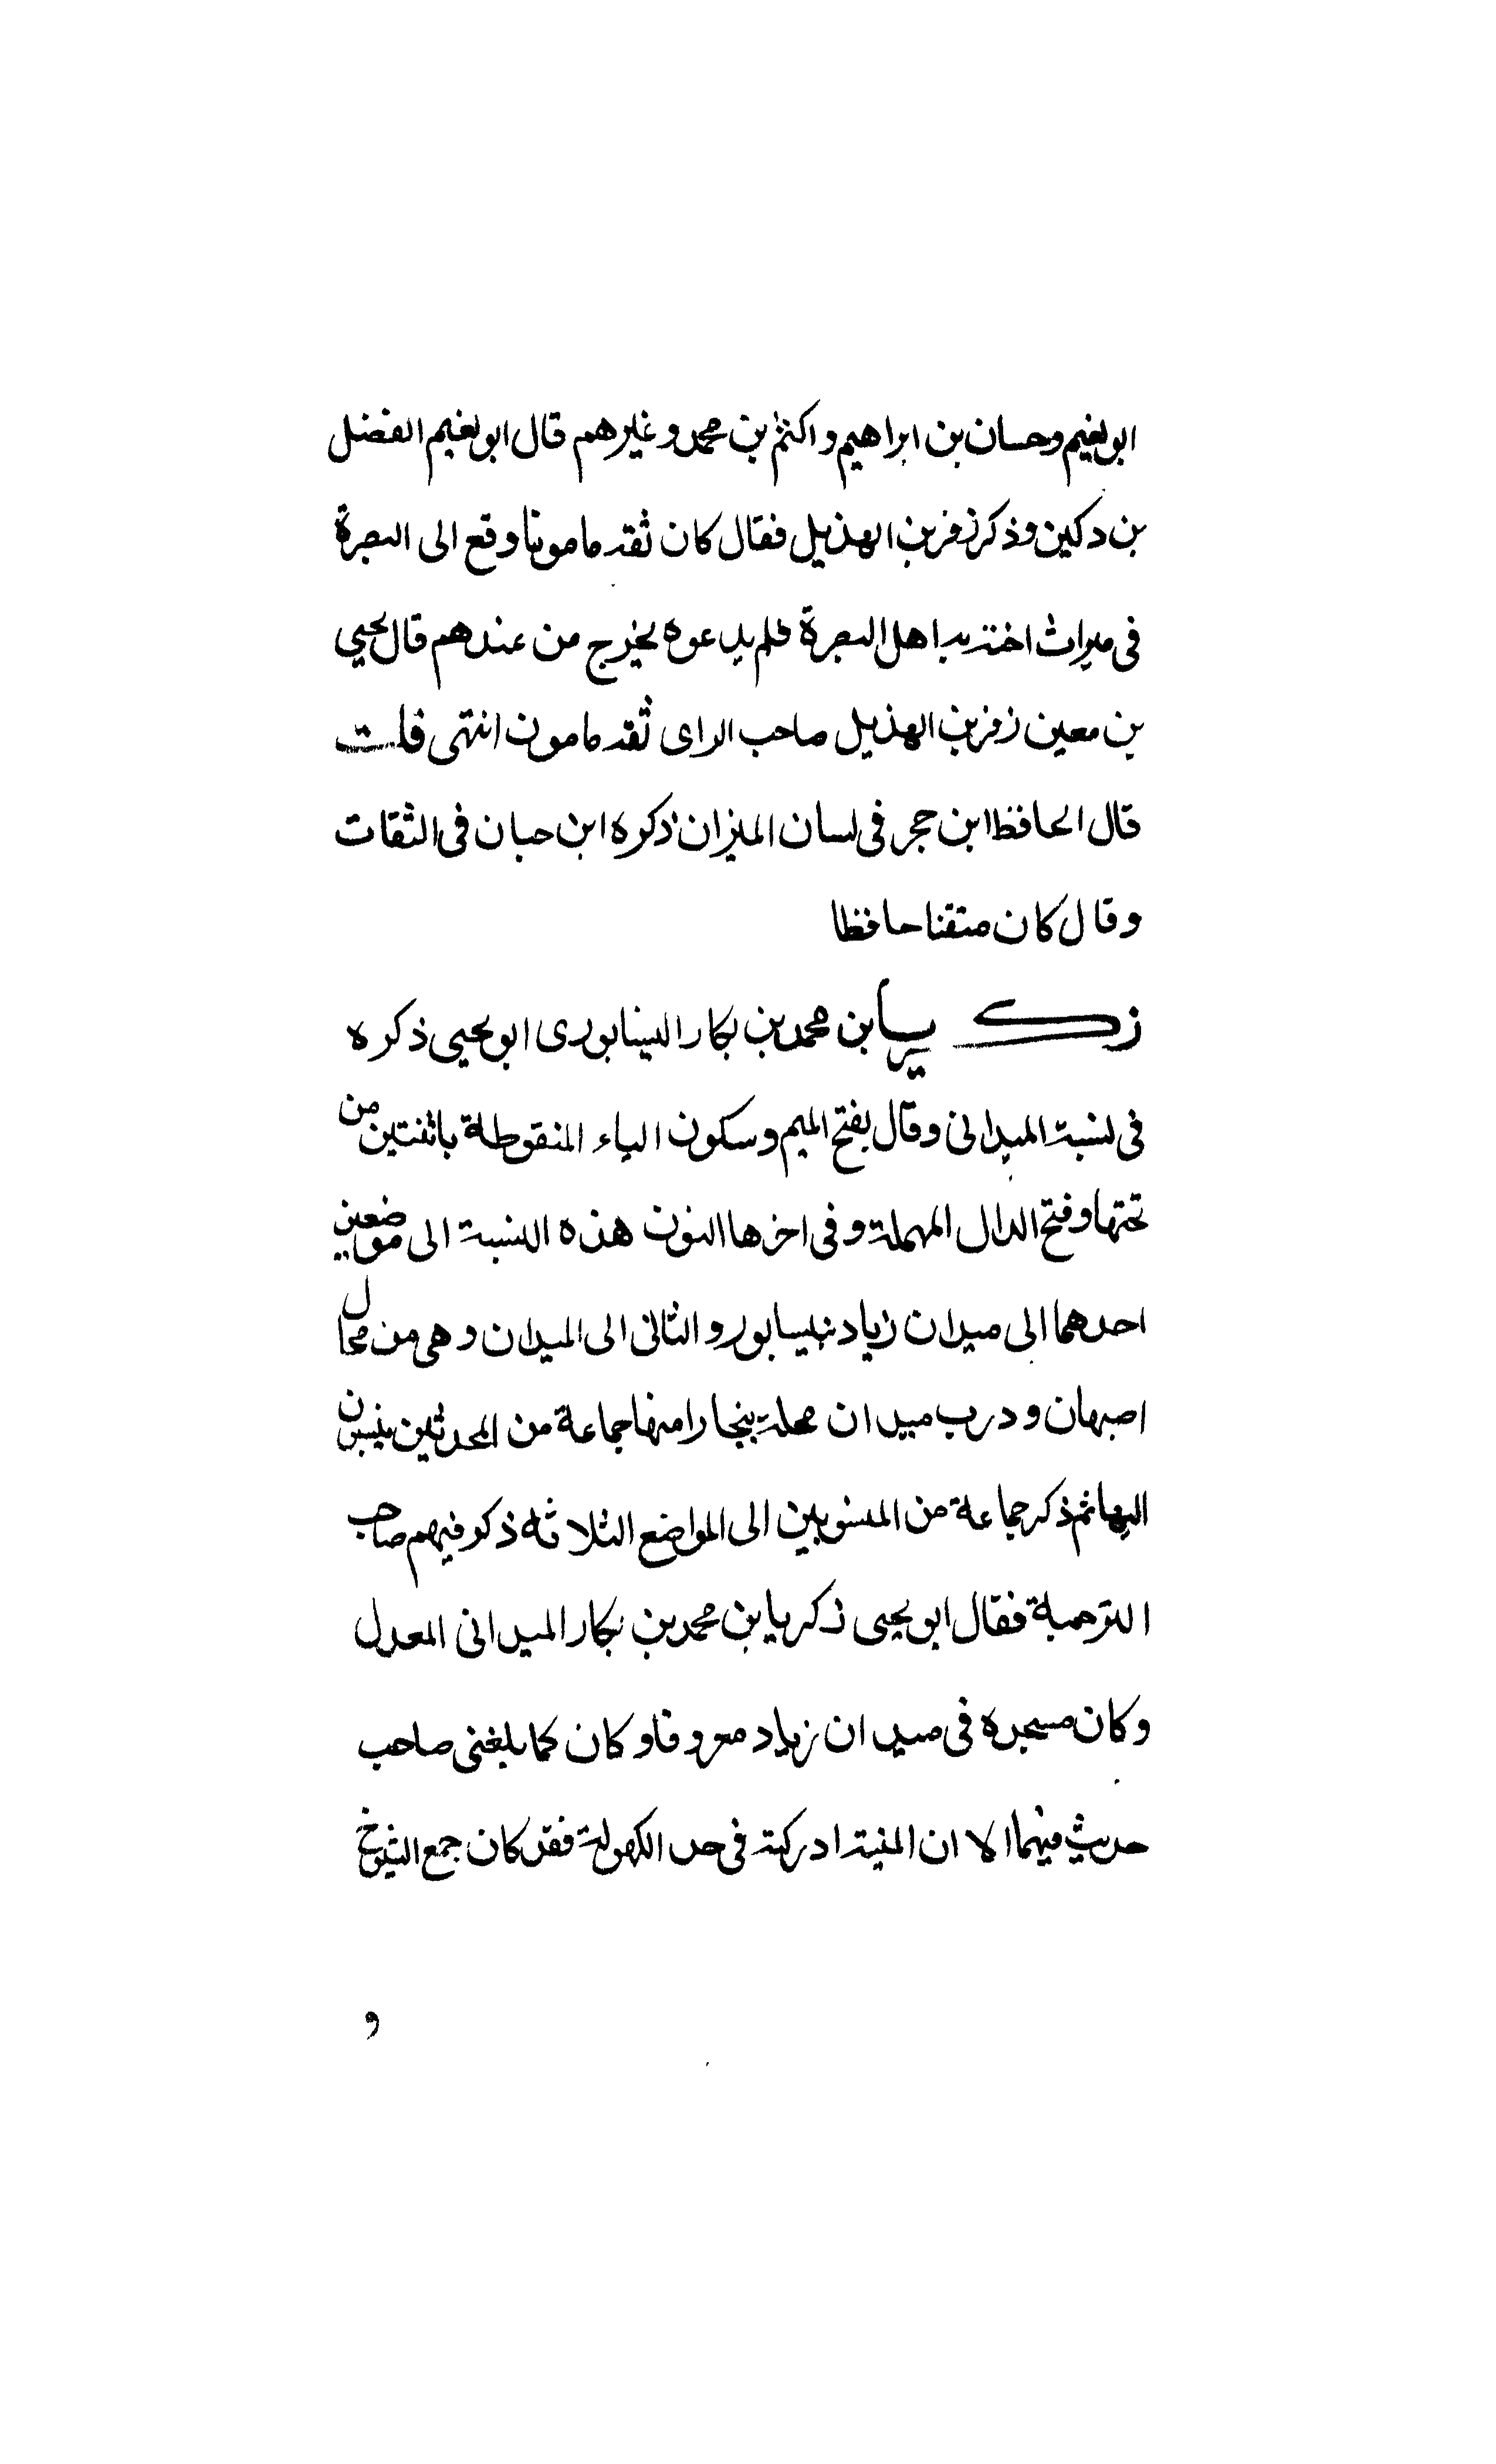 ابو نعيم وحسان بن ابراهيم واكثم بن محمد وغيرهم قال ابو نعيم الفضل
بن دكين وذكر زفر بن الهذيل فقال كان ثقة مامونا وقع الى البصرة
فى ميراث اخته اهل البصرة فلم يدعوه يخرج من عندهم قال يحيى
بن معين زفر بن الهذيل صاحب الراى ثقة مامون انتهى قلت
قال الحافظ ابن حجر فى لسان الميزان ذكره ابن حبان فى الثقات
وقال كان متقنا حافظا
زكريا بن محمد بن بكار النيسابورى ابو يحيى ذكره
فى نسبة الميدانى وقال بفتح الميم وسكون الياء المنقوطة باثنتين من
تحتها وفتح الدال المهملة وفى اخرها النون هذه النسبة الى موضعين
احدهما الى ميدان زياد نيسابور والثانى الى الميدان وهى من محال
اصبهان ودرب ميدان محلة بنجارا منها جماعة من المحدثين ينسبون
اليها ثم ذكر جماعة من المنسوبين الى المواضع الثلاثه ذكر فيهم صاحب
الترجمة فقال ابو يحيى زكريا بن محمد بن بكار الميدانى المعدل
وكان مسجده فى ميدان زياد معروفا وكان كما بلغنى صاحب
حديث فيهما الا ان المنية ادركته فى حد الكهولة فقد كان جمع الشيوخ
و